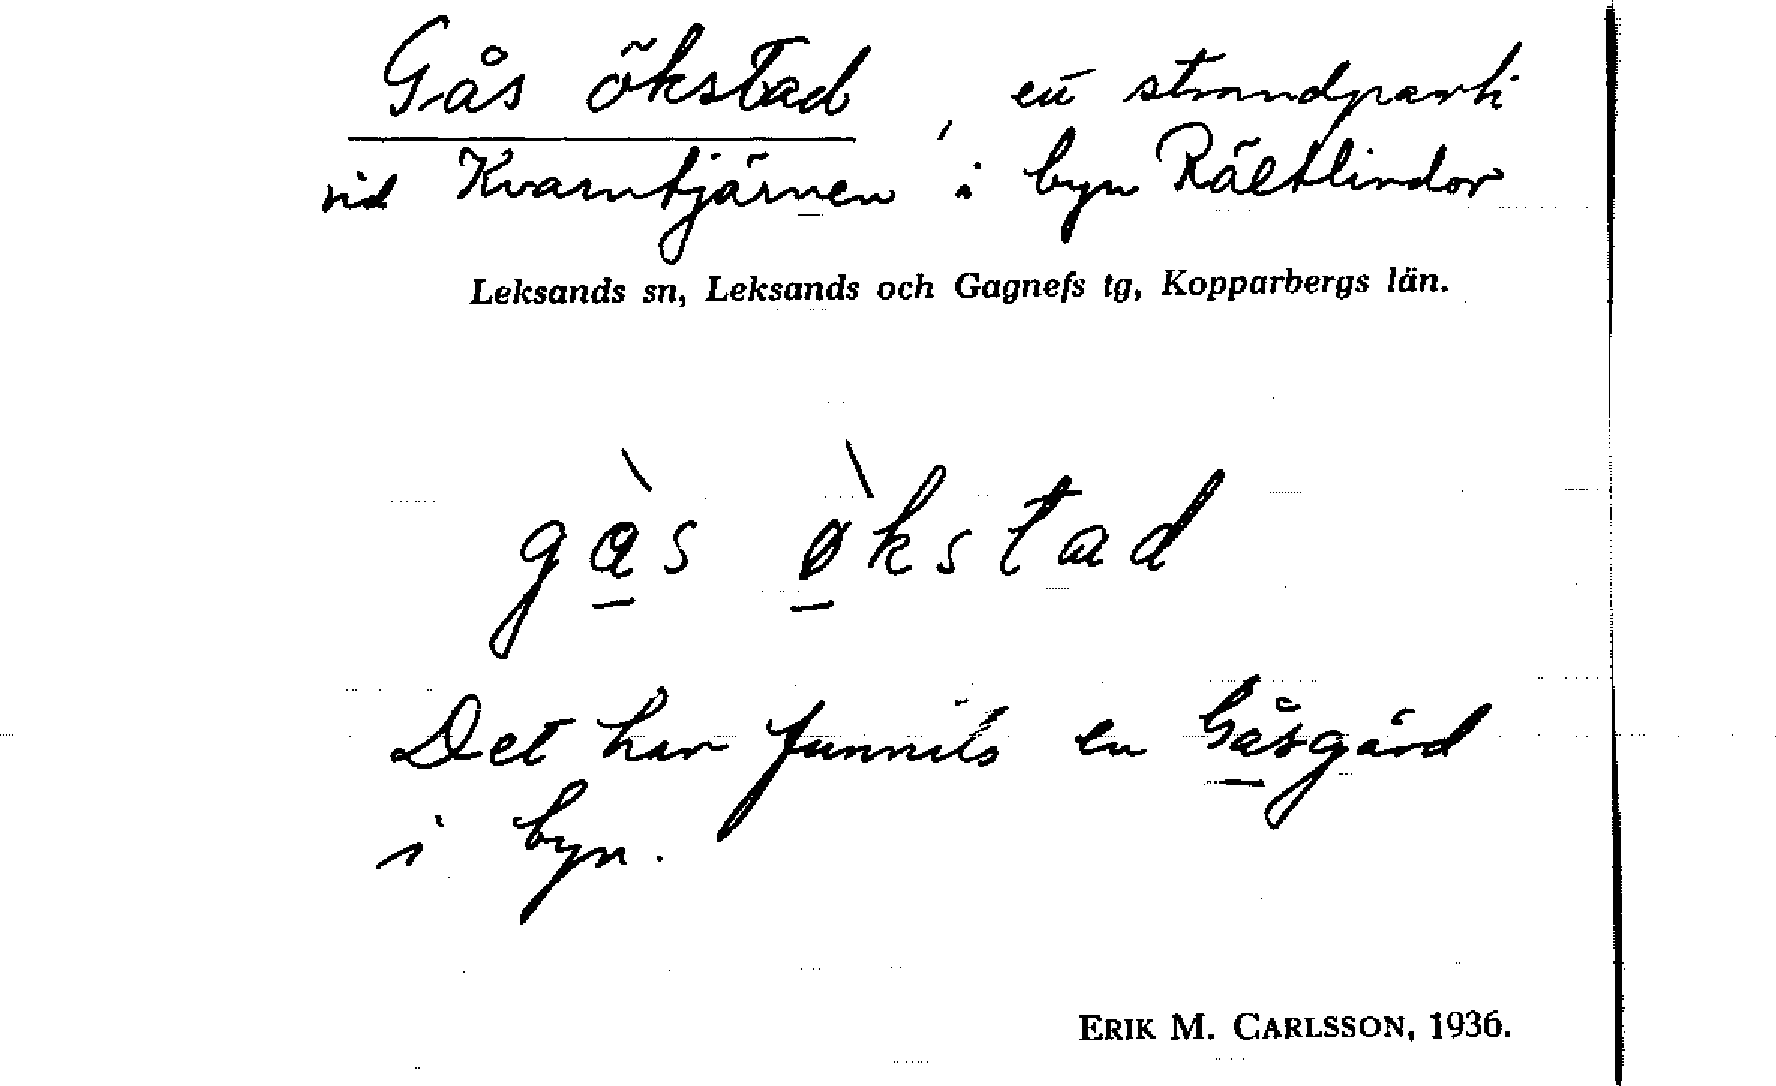 Gås ökstad, ett strandparti
vid Kvarntjärnen i byn Rältlindor
Leksands sn, Leksands och Gagnefs tg, Kopparbergs län.
gɑ̠̀s ø̠̀kstad
Det har funnits en Gåsgård
i byn.
ERIK M. CARLSSON, 1936.